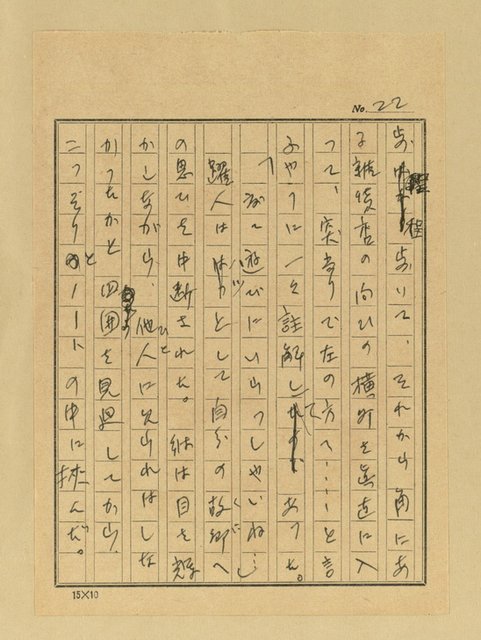 No. 22
歩程歩いて、それから角にあ
る雑貨店の向ひの横町を真直に入
つて、突當りで左の方へ……と言
ふやうに一々註解してあつた。
「夜に遊びにいらつしやいね…」
躍人はハツとして自分の故郷へ
の思ひを中断された。彼は目を輝
かしながら、他人に見られはしな
かつたかと四囲を見廻してから、
こつそりとノートの中に挾んだ。
15×10